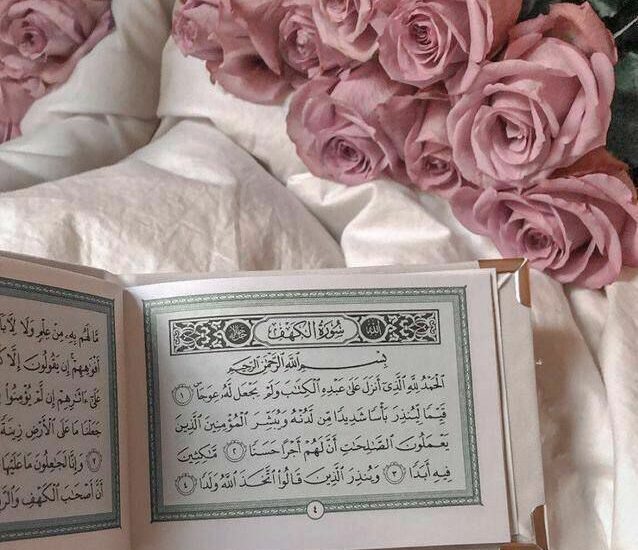 سُورَةُ الْكَهْفِ
اللّٰه
بِسْمِ اللَّهِ الرَّحْمَٰنِ الرَّحِيمِ
الْحَمْدُ لِلَّهِ الَّذِي أَنزَلَ عَلَىٰ عَبْدِهِ الْكِتَابَ وَلَمْ يَجْعَل لَّهُ عِوَجًا ۜ ١
قَيِّمًا لِّيُنذِرَ بَأْسًا شَدِيدًا مِّن لَّدُنْهُ وَيُبَشِّرَ الْمُؤْمِنِينَ الَّذِينَ
يَعْمَلُونَ الصَّالِحَاتِ أَنَّ لَهُمْ أَجْرًا حَسَنًا ٢ مَّاكِثِينَ
فِيهِ أَبَدًا ٣ وَيُنذِرَ الَّذِينَ قَالُوا اتَّخَذَ اللَّهُ وَلَدًا ٤
٤
مَّا لَهُم بِهِ مِنْ عِلْمٍ وَلَا
أَفْوَاهِهِمْ إِن يَقُولُونَ إِلَّا
عَلَىٰ آثَارِهِمْ إِن لَّمْ يُؤْمِنُوا
جَعَلْنَا مَا عَلَى الْأَرْضِ زِينَةً
٧ وَإِنَّا لَجَاعِلُونَ مَا عَلَيْهَا
أَنَّ أَصْحَابَ الْكَهْفِ